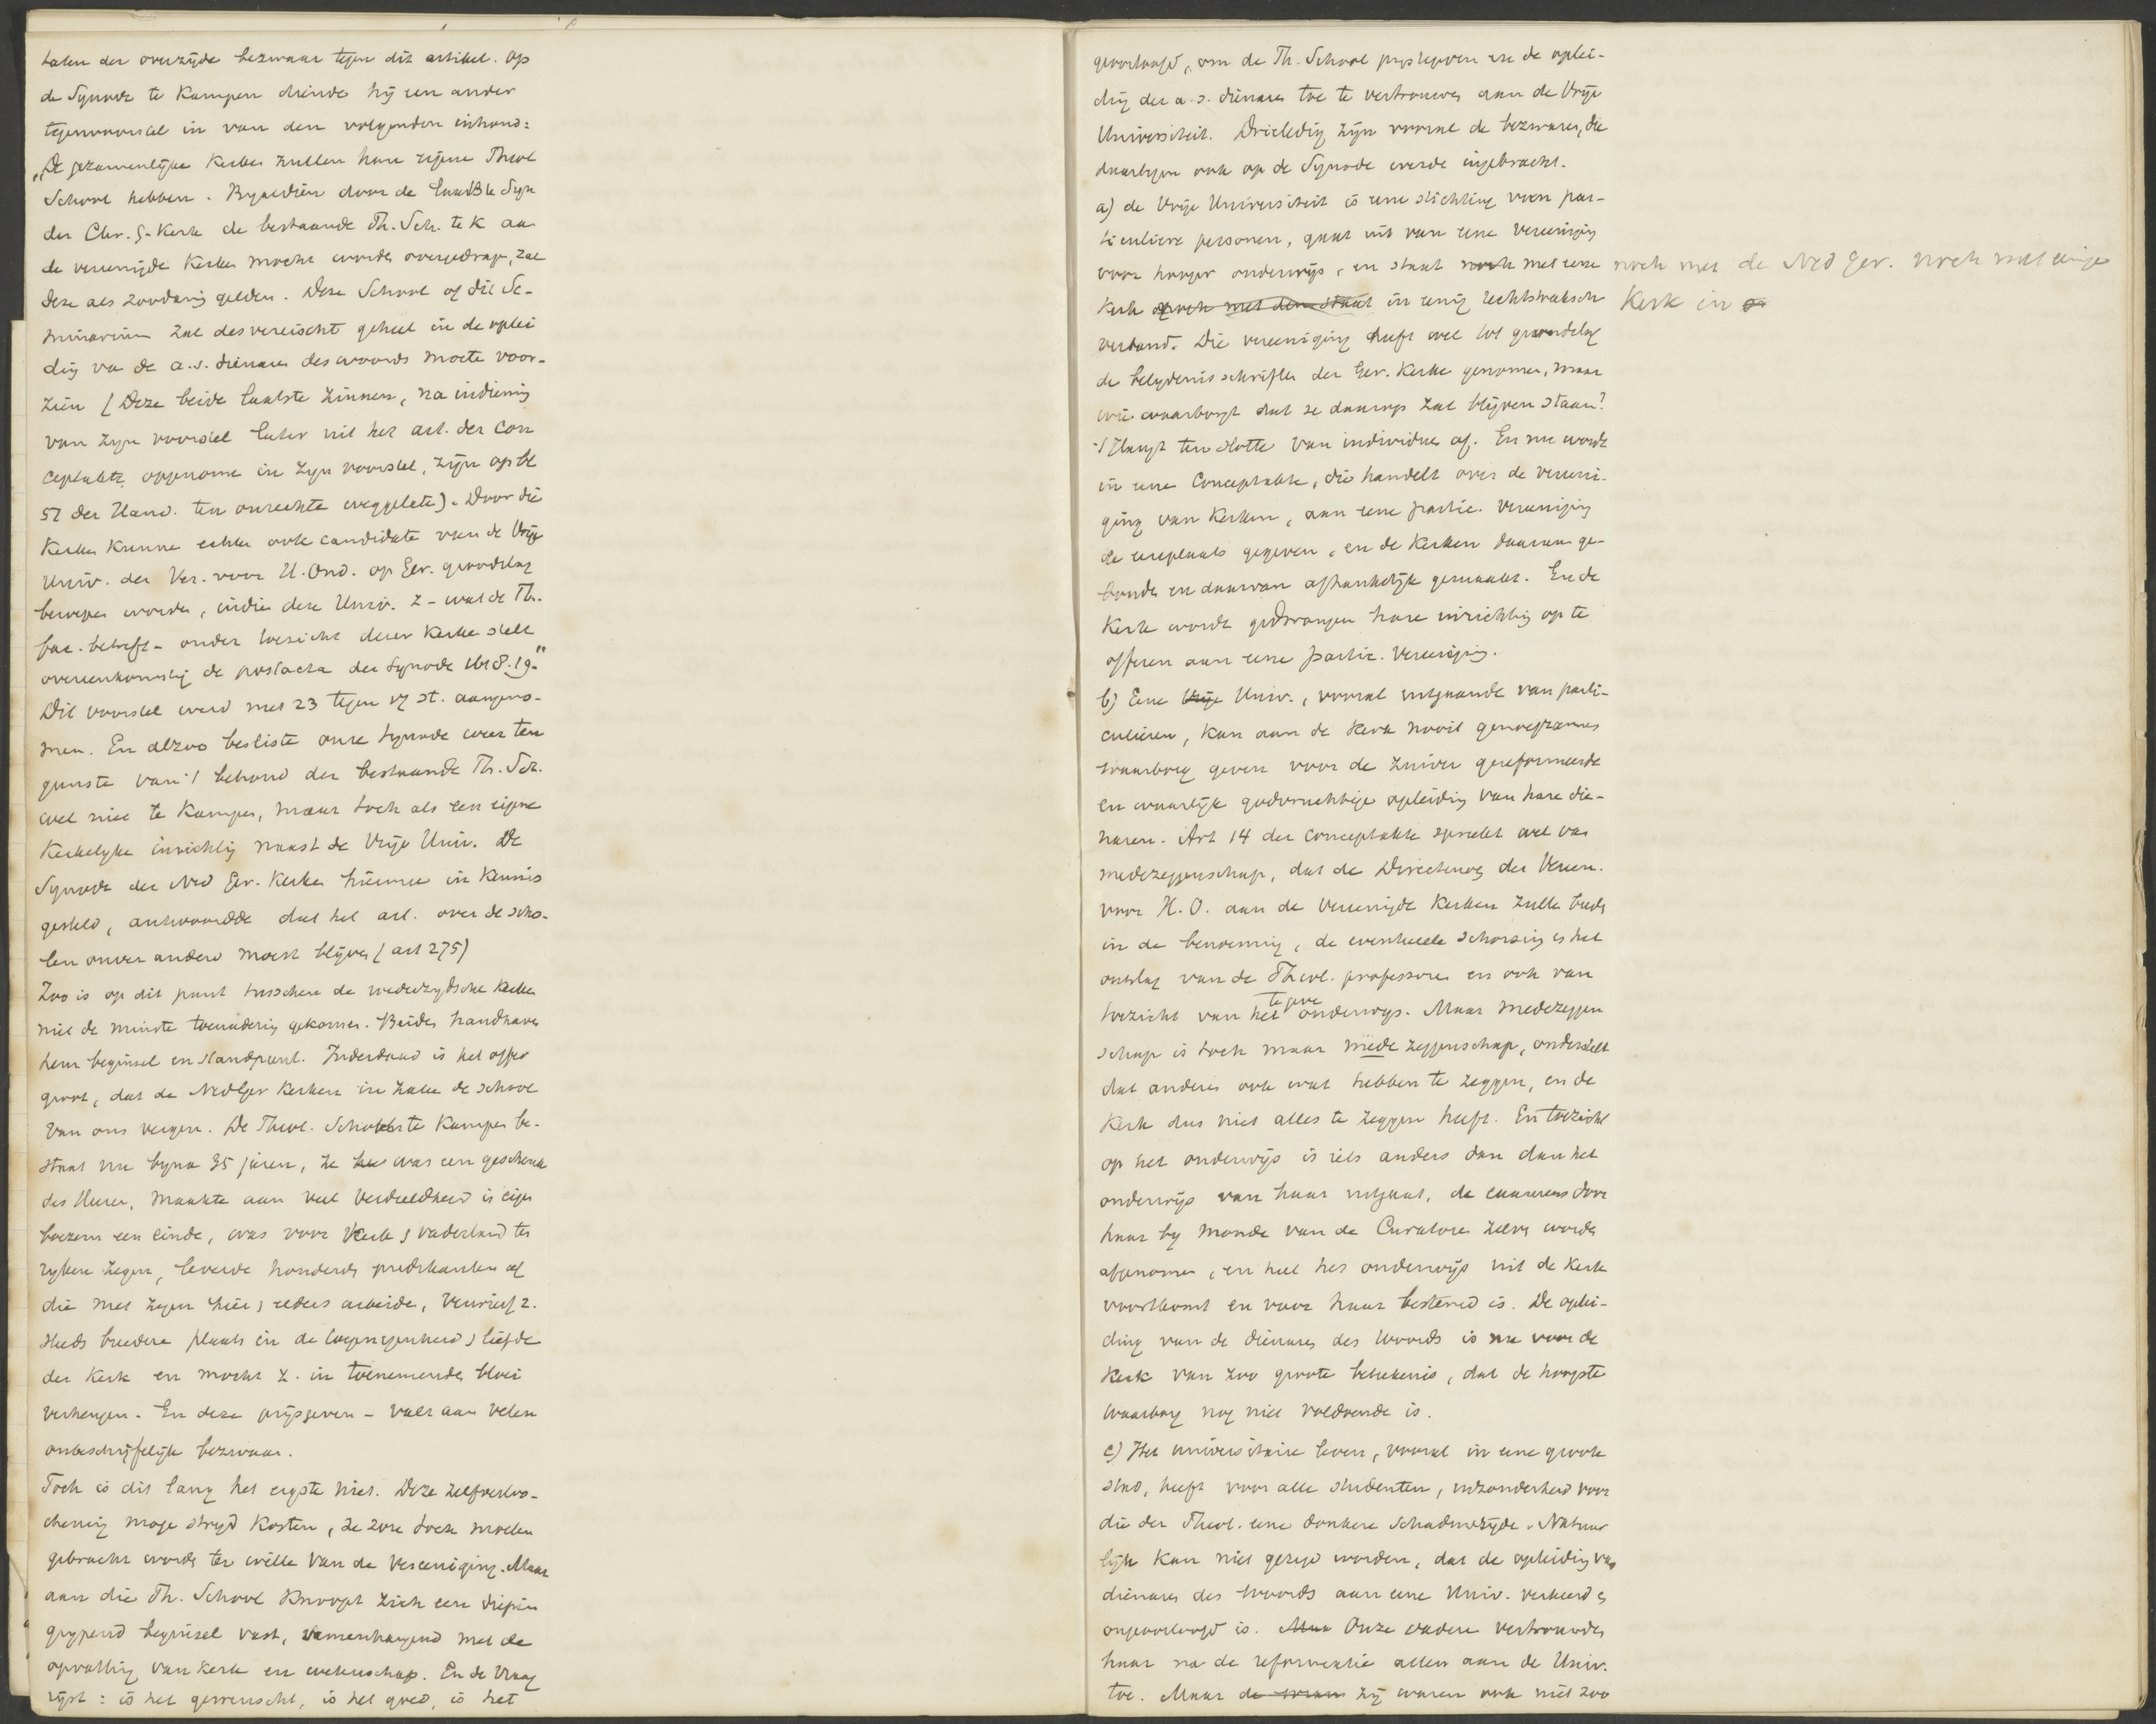 talen der overzijde bezwaar tegen dit artikel. Op
de Synode te Kampen diende hij een ander
tegenvoorstel in van den volgenden inhoud:
"De gezamenlijke Kerken zullen hun eigene Theol
School hebben. Byaldien door de laatste Syn
der Chr. G. Kerk de bestaande Th. Sch. te K aan
de vereenigde Kerken mocht worden overgedrag, zal
deze als zoodanig gelden. Deze School of dit Se-
minarium zal desvereischt geheel in de oplei
ding va de a.s. dienaren des woords moete voor-
zien (Deze beide laatste zinnen, na indiening
van zyn voorstel later uit het art. der con
ceptakte opgenome in zyn voorstel, zijn op bl
57 der Hand. ten onrechte weggelate). Door die
Kerken kunne echter ook candidate van de Vrije
Univ. der Ver. voor H. Ond. op Ger. grondslag
beroepen worden, indien deze Univ. z - wat de Th.
fac. betreft - onder toezicht dezer Kerken stelt
overeenkomstig de postacta der Synode 1618.19."
Dit voorstel werd met 23 tegen 17 st. aangeno-
men. En alzoo besliste onze Synode weer ten
gunste van 't behoud der bestaande Th. Sch.
wel niet te Kampen, maar toch als een eigene
Kerkelyke inrichting naast de Vrije Univ. De
Synode der Ned Ger. Kerken hiermee in kennis
gesteld, antwoordde dat het art. over de scho-
len onveranderd moest blijven (art 275)
Zoo is op dit punt tusschen de wederzydsche Kerken
niet de minste toenadering gekomen. Beiden handhaven
hun beginsel en standpunt. Inderdaad is het offer
groot, dat de NedGer Kerken in zake de school
van ons vergen. De Theol. School te Kampen be-
staat nu byna 35 jaren, ze was een geschenk
des Heeren, maakte aan veel verdeeldheid in eigen
boezem een einde, was voor Kerk & vaderland ten
rijken zegen, leverde honderde predikanten af
die met zegen hier & elders arbeide, verwierf z.
steeds breedere plaats in de toegenegenheid & liefde
der Kerk en mocht z. in toenemende bloei
verheugen. En deze prijsgeven - valt aan velen
onbeschrijfelijk bezwaar.
Toch is dit lang het ergste niet. Deze zelfverloo-
chening moge strijd kosten, ze zou toch moeten
gebracht worde ter wille van de vereeniging. Maar
aan die Th. School knoopt zich een diepin
grypend beginsel vast, samenhangend met de
opvatting van Kerk en wetenschap. En de vraag
rijst: is het gewenscht, is het goed, is het
geoorloofd, om de Th. School prystegeven en de oplei-
ding der a.s. dienaren toe te vertrouwen aan de Vrije
Universiteit. Drieledig zijn vooral de bezwaren, die
daartegen ook op de Synode werden ingebracht.
a) de Vrije Universiteit is eene stichting van par-
ticuliere personen, gaat uit van eene Vereeniging
voor hooger onderwijs, en staat noch met eene noch met de Ned Ger. noch met eenige
Kerk noch met den staat in eenig rechtstreeksch Kerk in
verband. Die vereeniging heeft wel tot grondslag
de belydenisschriften der Ger. Kerken genomen, maar
wie waarborgt dat ze daarop zal blijven staan?
't Hangt ten slotte van individuen af. En nu wordt
in eene Conceptakte, die handelt over de vereeni-
ging van Kerken, aan eene partic. Vereeniging
de eereplaats gegeven, en de Kerken daaraan ge-
bonde en daarvan afhankelijk gemaakt. En de
Kerk wordt gedwongen hare inrichting op te
offeren aan eene partic. Vereeniging.
b) Eene Vrije Univ., vooral uitgaande van parti-
culieren, kan aan de Kerk nooit genoegzamen
waarborg geven voor de zuiver gereformeerde
en waarlijk godvruchtige opleiding van hare die-
naren. Art 14 der conceptakte spreekt wel van
medezeggenschap, dat de Directeuren der Vereen.
voor H. O. aan de Vereenigde Kerken zulle biede
in de benoeming, de eventueele schorsing en het
ontslag van de Theol. professoren en ook van
toezicht van het te geve onderwys. Maar medezeggen
schap is toch maar mede zeggenschap, onderstelt
dat anderen ook wat hebben te zeggen, en de
Kerk dus niet alles te zeggen heeft. En toezicht
op het onderwijs is iets anders dan dan het
onderwijs van haar uitgaat, de examens door
haar by monde van de Curatoren zelve worde
afgenomen, en heel het onderwijs uit de Kerk
voortkomt en voor haar bestemd is. De oplei-
ding van de dienaren des Woords is nu voor de
Kerk van zoo groote beteekenis, dat de hoogste
waarborg nog niet voldoende is.
c) Het universitaire leven, vooral in eene groote
stad, heeft voor alle studenten, inzonderheid voor
die der Theol. eene donkere schaduwzijde. Natuur
lijk kan niet gezegd worden, dat de opleiding van
dienaren des Woords aan eene Univ. verkeerd &
ongeoorloofd is. Maar Onze vaderen vertrouwden
haar na de reformatie allen aan de Univ.
toe. Maar zij waren ook niet zoo